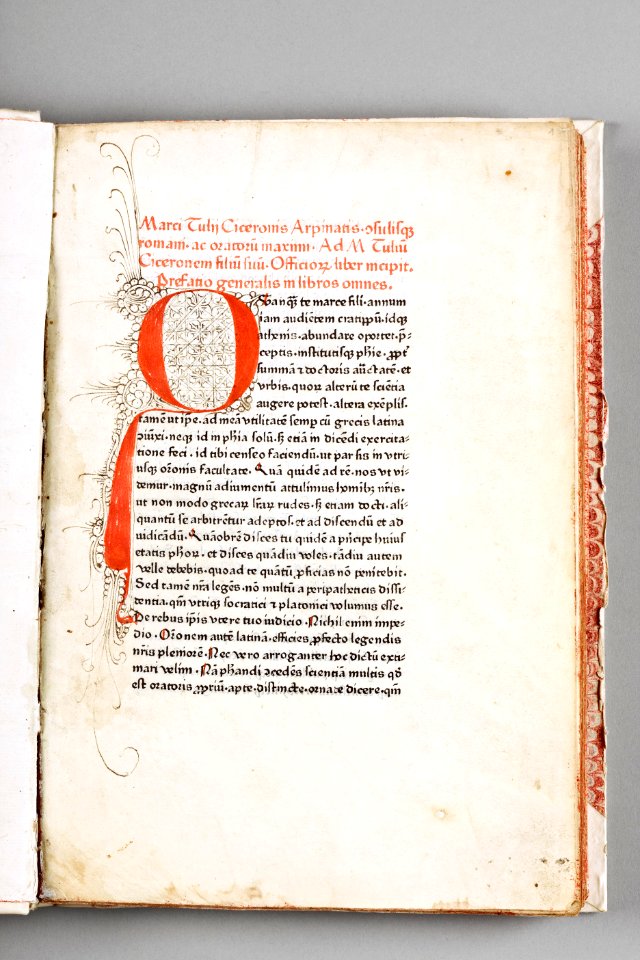 Marci Tulij Ciceronis Arpinatis·ↄsulisqꝫ
romani·ac oratorū maximi·Ad M Tuliū
Ciceronem filiū suū·Officioꝝ liber incipit·
Prefatio generalis in libros omnes·
Qvanqꝫ te marce fili·annum
iam audientem cratippū·idqꝫ
athenis·abundare oportet·p̄-
ceptis·institutisqꝫ phie·ꝓpt̄
summā ⁊ doctoris auctatē·et
vrbis·quoꝝ alterū te sciētia
augere potest·altera exēplis·
tamē ut ip̄e·ad meā vtilitatē semꝑ cū grecis latina
ↄiūxi·neqꝫ id in phia solū·sꝫ etiā in dicēdi exercita-
tione feci·id tibi censeo faciendū·ut par sis in vtri-
usqꝫ or̄onis facultate·Quā quidē ad rē·nos vt vi-
demur·magnū adiumentū attulimus hoībꝫ nr̄is·
ut non modo grecaꝝ lr̄aꝝ rudes·sꝫ etiam docti·ali-
quantū se arbitrētur adeptos·et ad discendū et ad
iudicādū·Quāobrē disces tu quidē a p̄icipe huius
etatis ph̄oꝝ·et disces quādiu voles·tādiu autem
velle debebis·quoad te quātū ꝓficias nō penitebit·
Sed tamē nr̄a legēs·nō multū a peripatheticis dissi-
dentia·qm̄ vtriqꝫ socratici ⁊ platonici volumus esse·
De rebus ip̄is vtere tuo iudicio·Nichil enim impe-
dio·Or̄onem autē latinā·efficies ꝓfecto legendis
nr̄is pleniorē·Nec vero arroganter hoc dictū exti-
mari velim·Nā ph̄andi ↄcedēs scientiā multis qđ
est oratoris ꝓpriū·apte·distincte·ornate dicere·qm̄